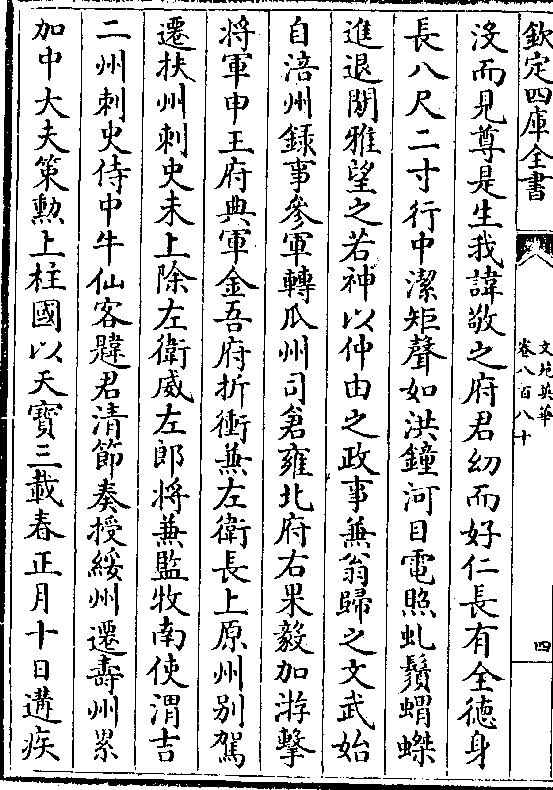 欽定四庫全書
文苑英華
卷八百八十
四
沒而見尊是生我諱敬之府君幼而好仁長有全徳身
長八尺二寸行中潔矩聲如洪鐘河目電照虬鬚蝟磔
進退閒雅望之若神以仲由之政事兼翁歸之文武始
自涪州録事參軍轉瓜州司倉雍北府右果毅加游撃
將軍申王府典軍金吾府折衝兼左衛長上原州别駕
遷扶州刺史未上除左衛威左郎將兼監牧南使渭吉
二州刺史侍中牛仙客韙君清節奏授綏州遷壽州累
加中大夫策勲上柱國以天寳三載春正月十日遘疾